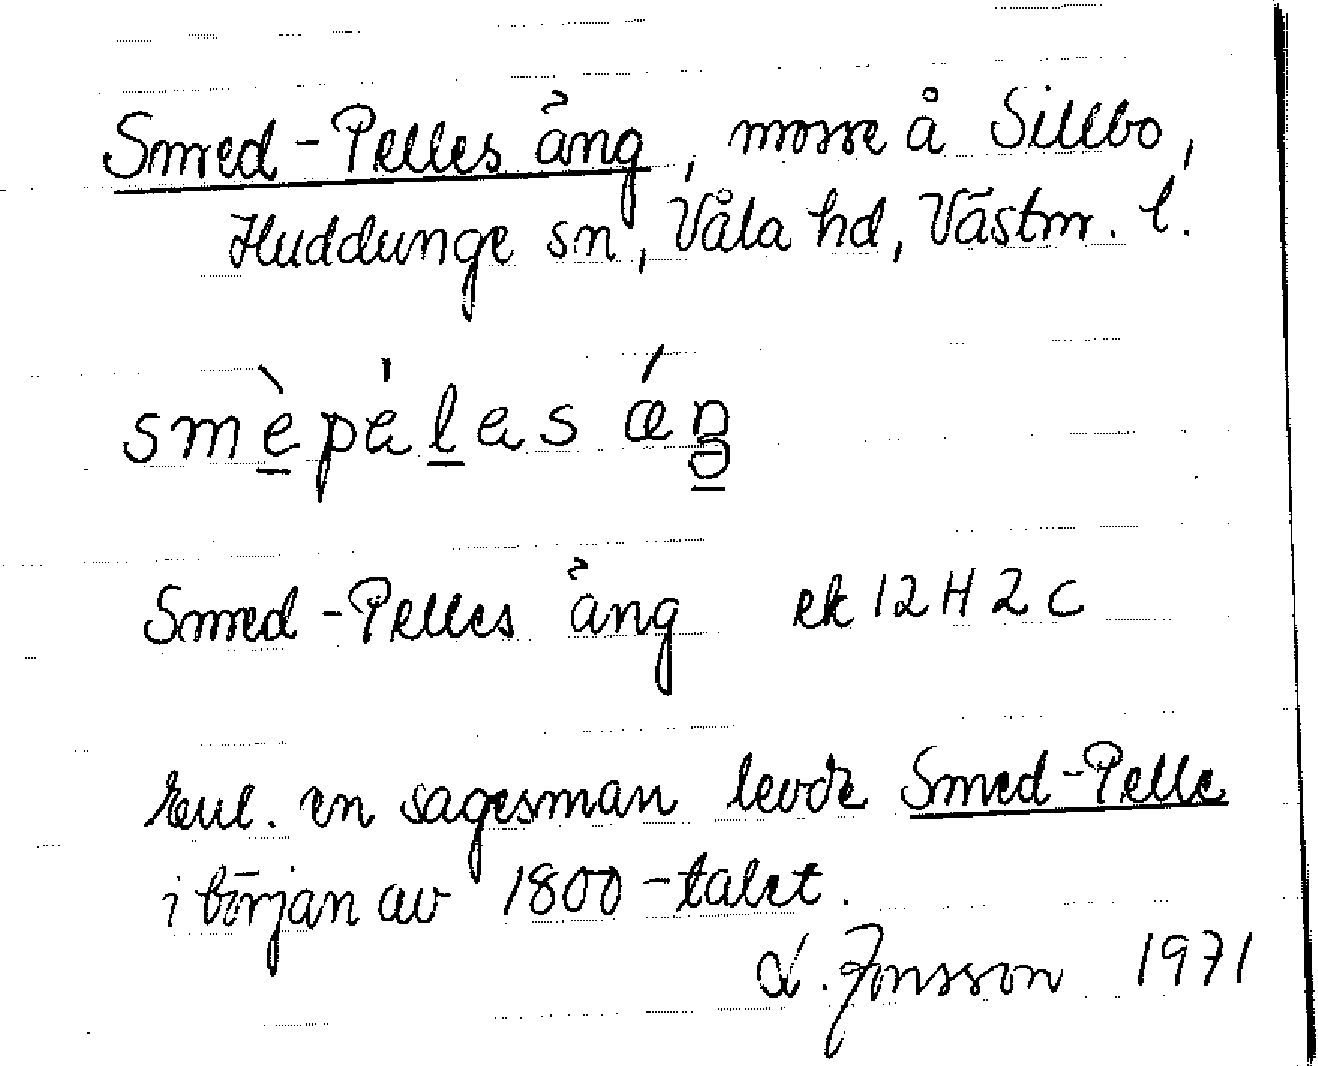 Smed-Pelles äng, mosse å Sillbo,
Huddunge sn, Våla hd, Västm. l.
smèpèles áŋ
Smed-Pelles äng ek 12H2c
Enl. en sagesman levde Smed-Pelle
i början av 1800-talet.
L. Jonsson 1971